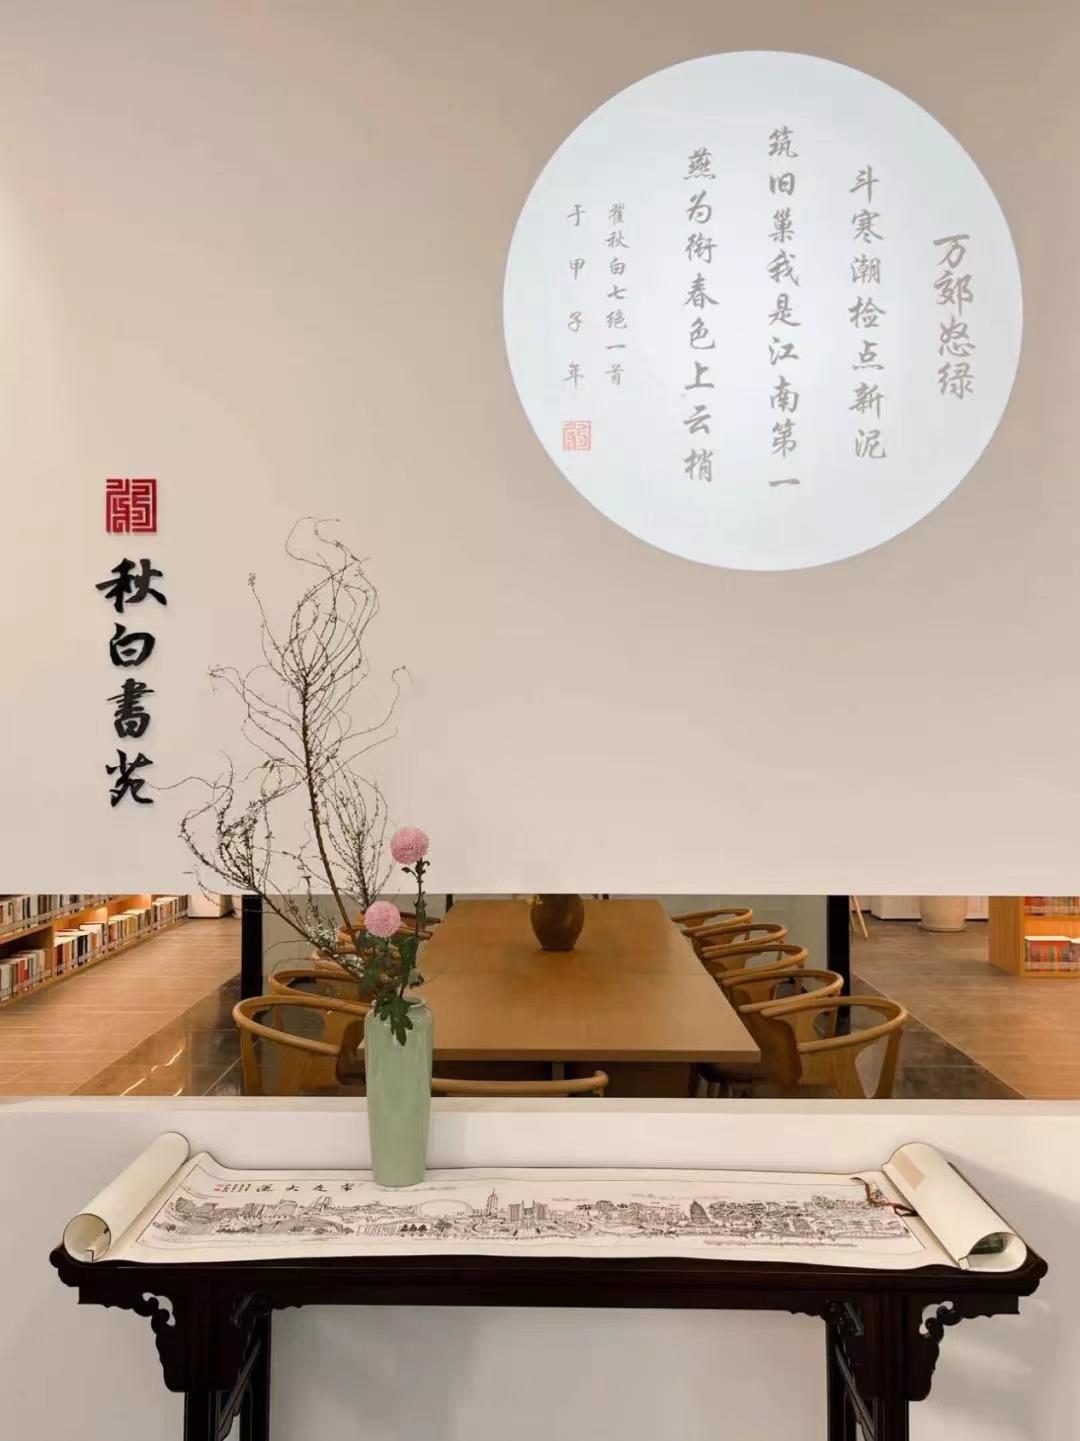 万郊怒绿
斗寒潮检点新泥
筑旧巢我是江南第一
燕为衔春色上云梢
瞿秋白七绝一首
于甲子年
秋白書苑